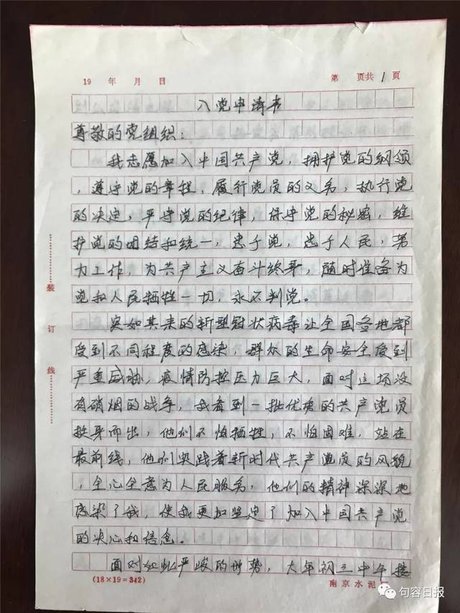 19 年 月 日 第 页共 1 頁
入党申请书
尊敬的党组织：
我志愿加入中国共产党，拥护党的纲领
，遵守党的章程，履行党员的义务，执行党
的决定，严守党的纪律，保守党的秘密，维
护党的团结和统一，忠于党，忠于人民，努
力工作，为共产主义奋斗终身，随时准备为
党和人民牺牲一切，永不判党。
突如其来的新型冠状病毒让全国各地都
受到不同程度的感染，群众的生命安全受到
严重威胁，疫情防控压力巨大，面对这场没
有硝烟的战争，我看到一批优秀的共产党员
挺身而出，他们不怕牺牲，不怕困难，站在
最前线，他们实践着新时代共产党员的风貌
，全心全意为人民服务，他们的精神深深地
感染了我，使我更加坚定了加入中国共产党
的决心和信念。
面对如此严峻的形势，大年初三中午接
(18×19=342) 南京水泥
装
订
线
句容日报